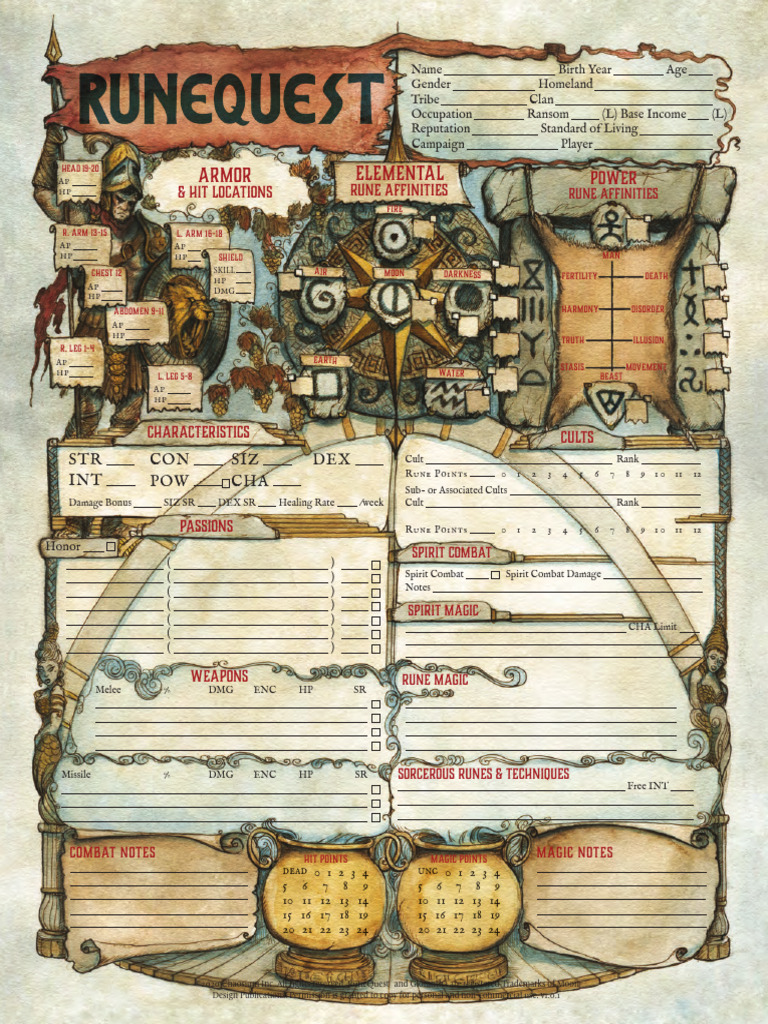 RUNEQUEST
Name Birth Year Age
Gender Homeland
Tribe Clan
Occupation Ransom (L) Base Income (L)
Reputation Standard of Living
Campaign Player
ARMOR
& HIT LOCATIONS
HEAD 19-20
AP
HP
R. ARM 13-15
AP
HP
L. ARM 16-18
AP
HP
SHIELD
SKILL
HP
DMG
CHEST 12
AP
HP
ABDOMEN 9-11
AP
HP
R. LEG 1-4
AP
HP
L. LEG 5-8
AP
HP
ELEMENTAL
RUNE AFFINITIES
FIRE
AIR MOON DARKNESS
EARTH WATER
POWER
RUNE AFFINITIES
MAN
FERTILITY DEATH
HARMONY DISORDER
TRUTH ILLUSION
STASIS MOVEMENT
BEAST
CHARACTERISTICS
STR CON SIZ DEX
INT POW CHA
Damage Bonus SIZ SR DEX SR Healing Rate /week
PASSIONS
Honor
( )
( )
( )
( )
( )
( )
( )
WEAPONS
Melee % DMG ENC HP SR
Missile % DMG ENC HP SR
CULTS
Cult Rank
RUNE POINTS 0 1 2 3 4 5 6 7 8 9 10 11 12
Sub- or Associated Cults
Cult Rank
RUNE POINTS 0 1 2 3 4 5 6 7 8 9 10 11 12
SPIRIT COMBAT
Spirit Combat Spirit Combat Damage
Notes
SPIRIT MAGIC
CHA Limit
RUNE MAGIC
SORCEROUS RUNES & TECHNIQUES
Free INT
COMBAT NOTES
HIT POINTS
DEAD 0 1 2 3 4
5 6 7 8 9
10 11 12 13 14
15 16 17 18 19
20 21 22 23 24
MAGIC POINTS
UNC 0 1 2 3 4
5 6 7 8 9
10 11 12 13 14
15 16 17 18 19
20 21 22 23 24
MAGIC NOTES
Chaosium Inc. All trademarks of Moon
Design Publications. Permission is granted to copy for personal and non-commercial use.